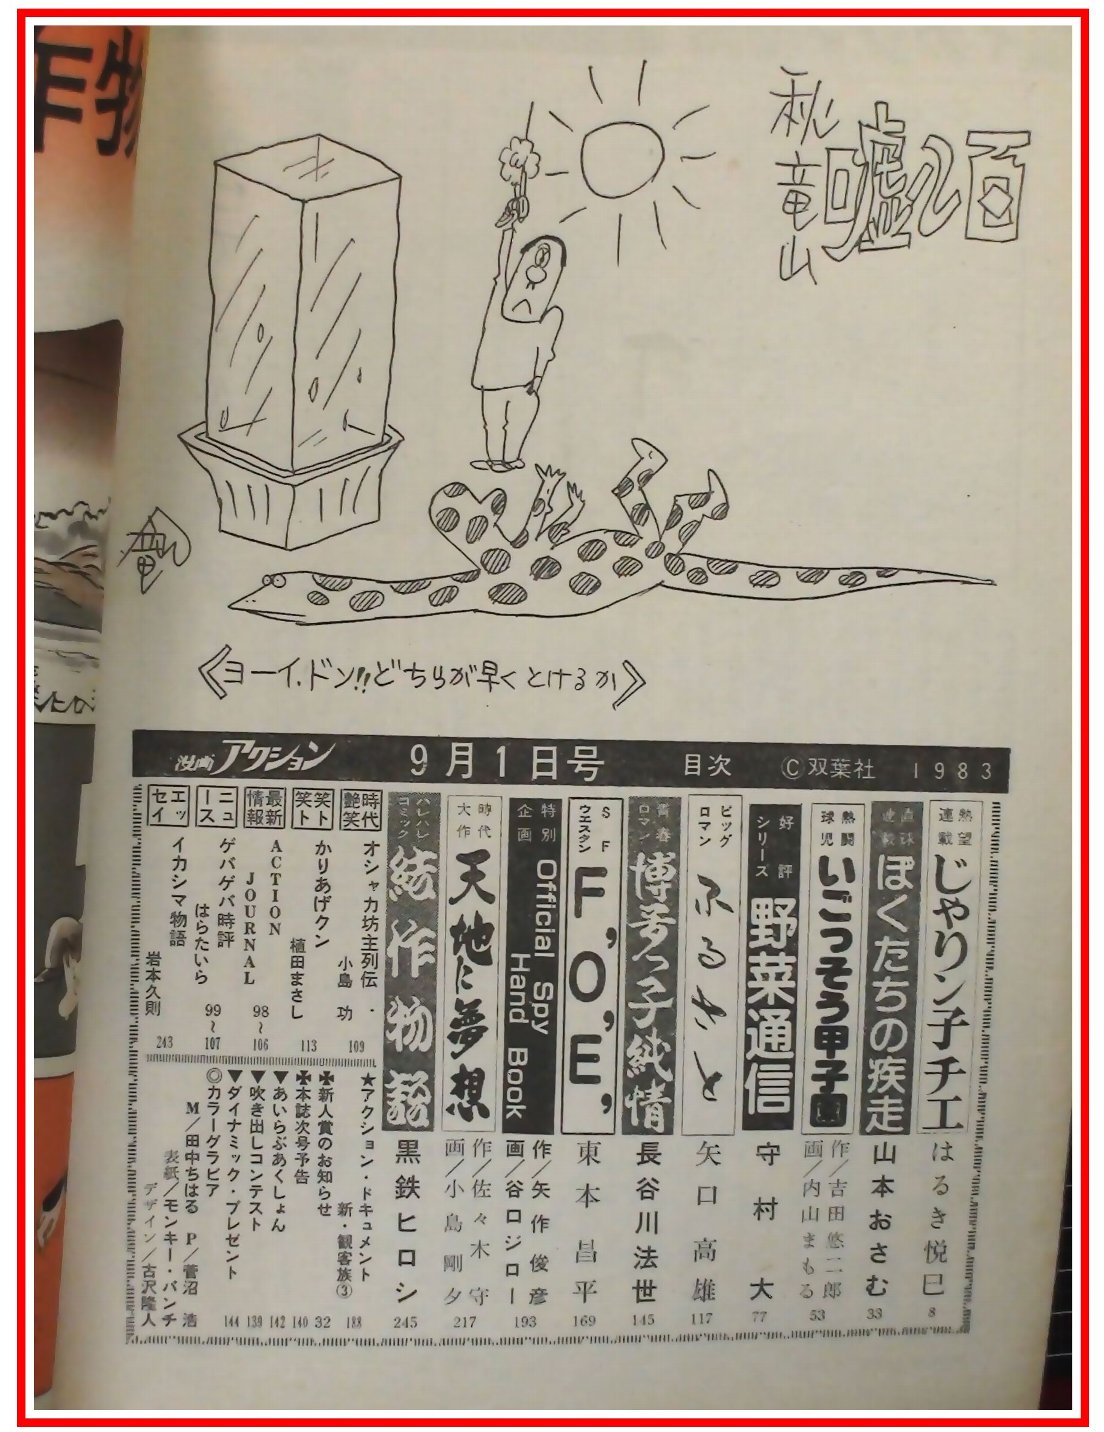 秋竜山
嘘八百
竜
《ヨーイ.ドン!!どちらが早くとけるか》
漫画アクション 9月1日号 目次 ©双葉社 1983
熱望連載 じゃりン子チエ はるき悦巳 8
直球連載 ぼくたちの疾走 山本おさむ 33
熱闘球児 いごっそう甲子園 作/吉田悠二郎 画/内山まもる 53
好評シリーズ 野菜通信 守村大 77
ビッグロマン ふるさと 矢口高雄 117
青春ロマン 博多っ子純情 長谷川法世 145
SFウエスタン F,O,E, 東本昌平 169
特別企画 Official Spy Hand Book 作/矢作俊彦 画/谷口ジロー 193
時代大作 天地に夢想 作/佐々木守 画/小島剛夕 217
ハレハレコミック 紡作物語 黒鉄ヒロシ 245
時代艶笑 オシャカ坊主列伝・小島功 109
笑ト笑ト かりあげクン 植田まさし 113
最新情報 ACTION JOURNAL 98~106
ニュース ゲバゲバ時評 はらたいら 99~107
エッセイ イカシマ物語 岩本久則 243
★アクション・ドキュメント 新・観客族③ 188
✚新人賞のお知らせ 32
✚本誌次号予告 140
▼あいらぶあくしょん 142
▼吹き出しコンテスト 139
▼ダイナミック・プレゼント 144
◎カラーグラビア M/田中ちはる P/菅沼浩
表紙/モンキー・パンチ
デザイン/古沢隆人
作物